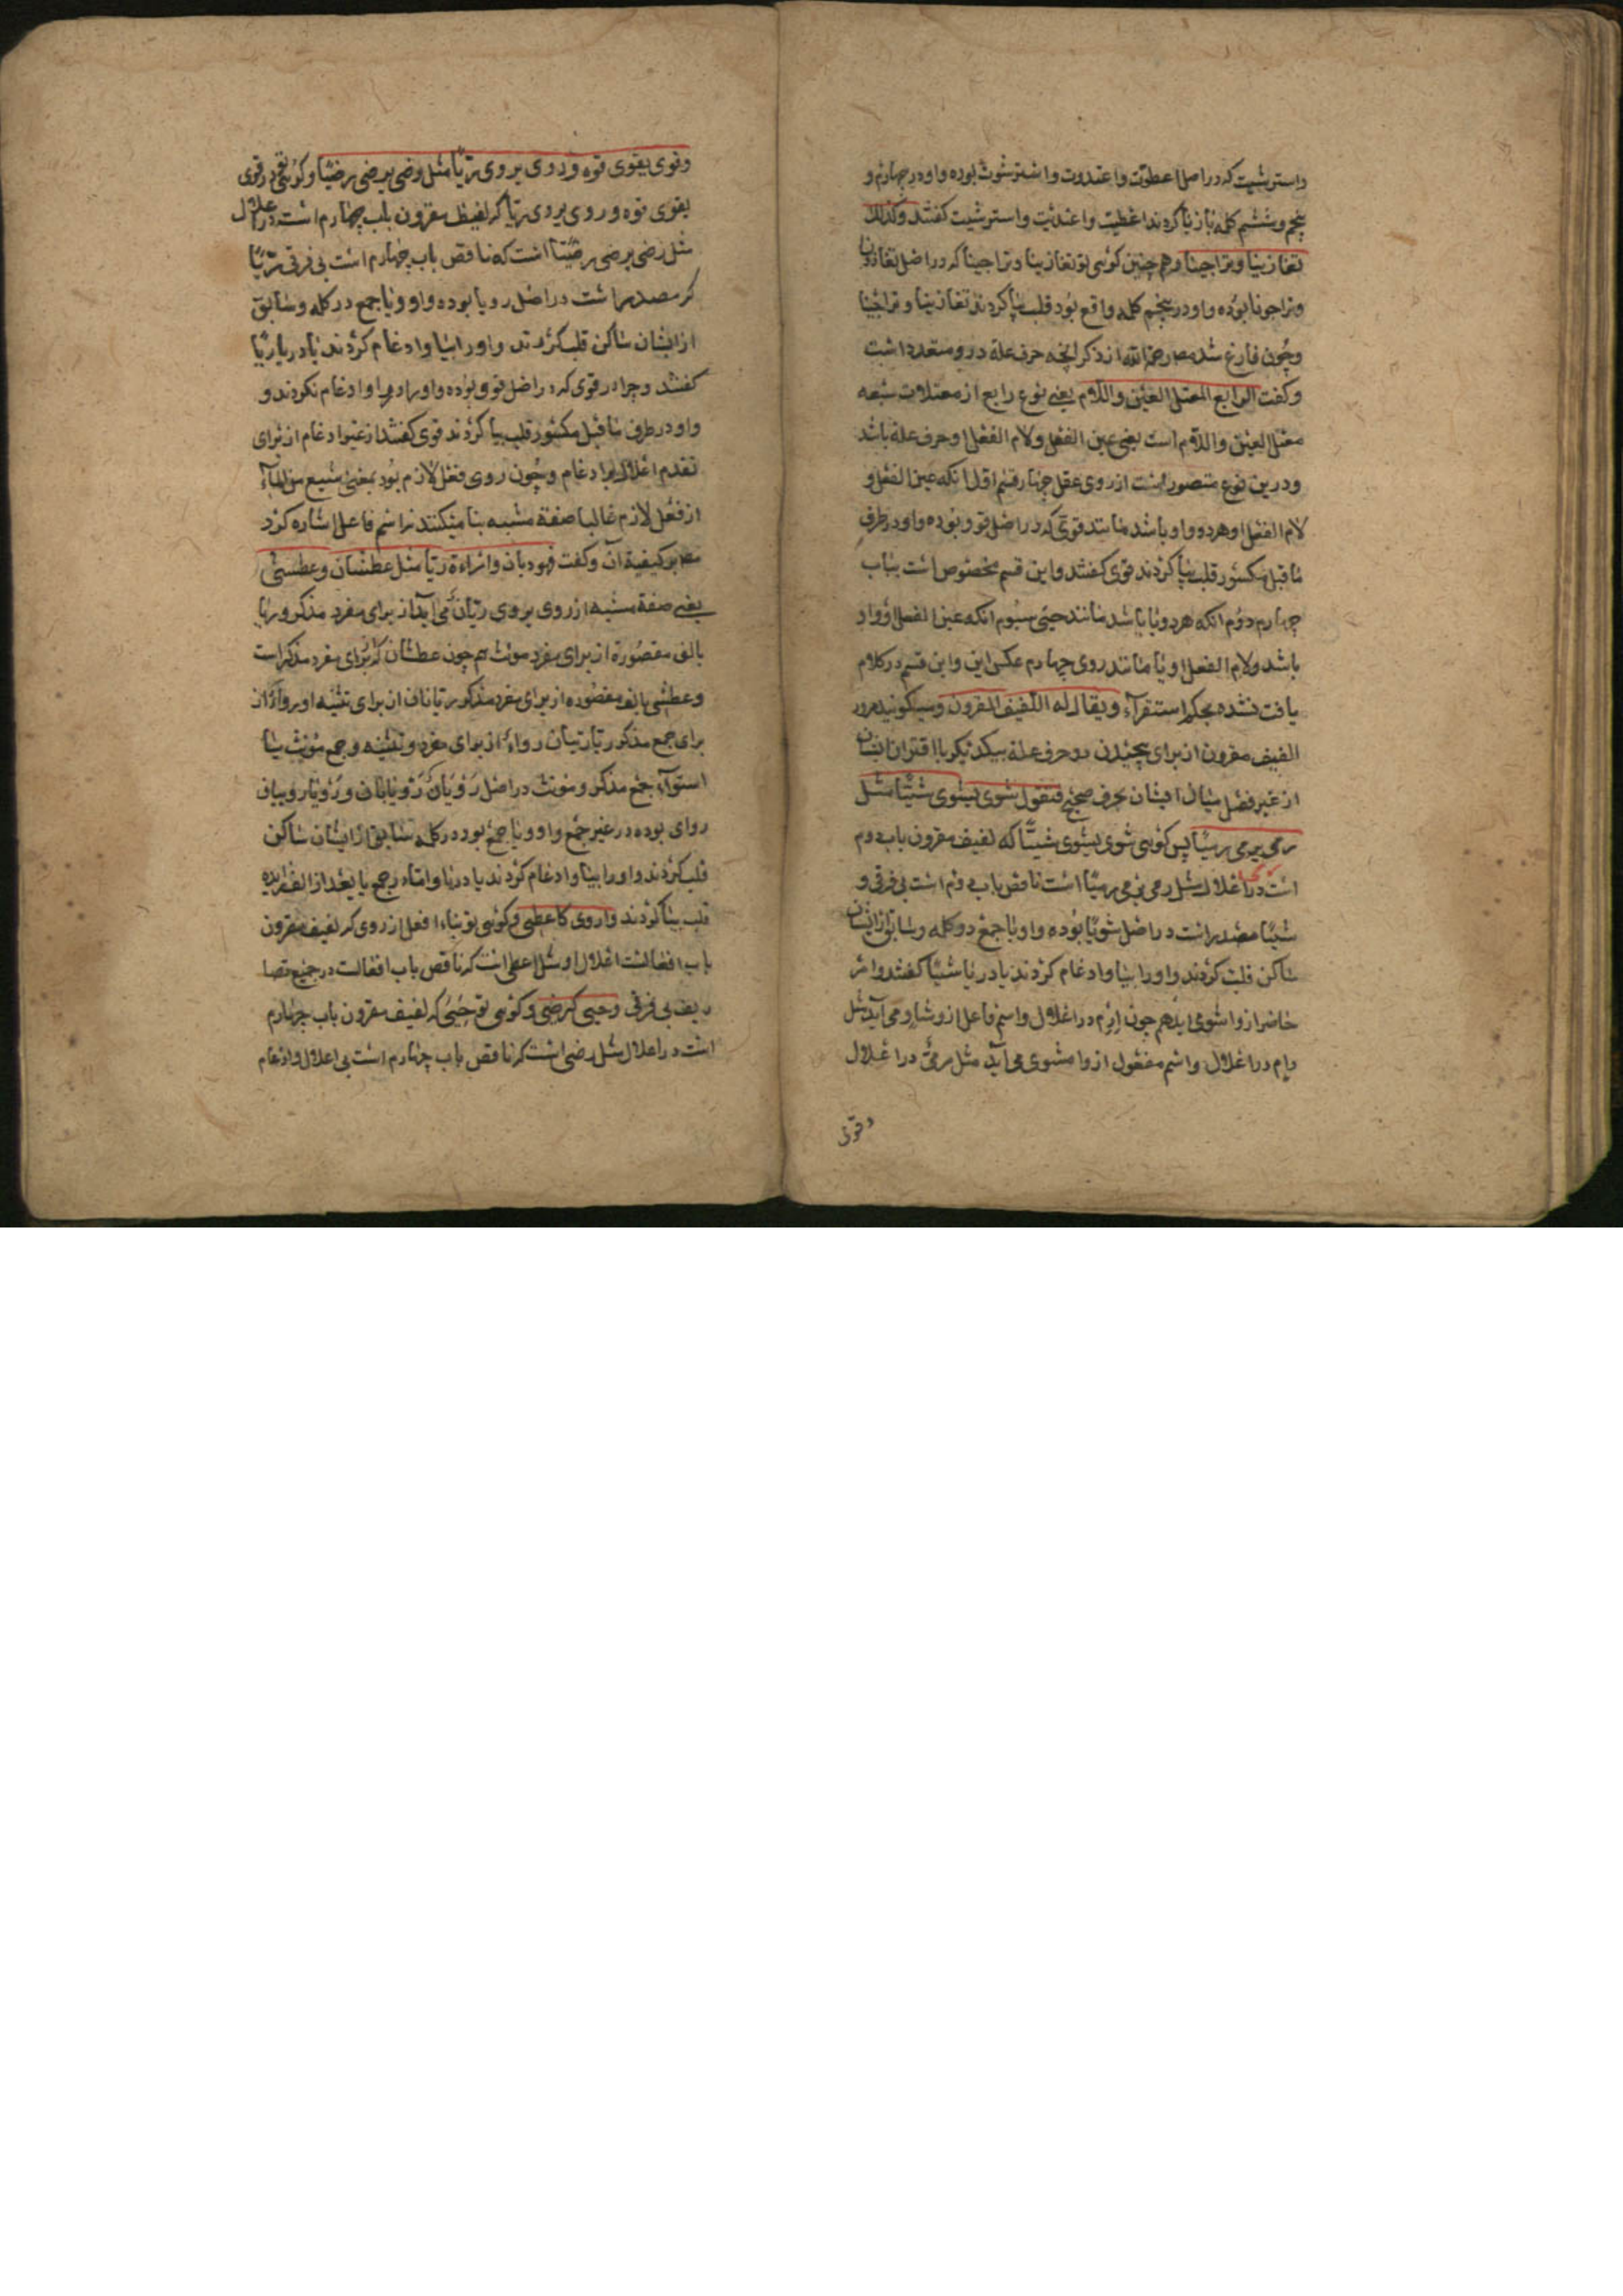 واسترشیت که در اصل اعطوت واعتدوت واسترشوت بوده واو در چهارم و
پنجم وششم کلمه باز یا کردند اعطیت واعتدیت واسترشیت کفتند وکذلک
تغازینا وتراجینا وهم چنین کوئی تو تغازینا وتراجینا که در اصل تغازونا
وتراجونا بوده واو در پنجم کلمه واقع بود قلب بیا کردند تغازینا وتراجینا
وچون فارغ شد مصر رحمه الله از ذکر انچه حرف علة درو متعدد داشت
وکفت الرابع المعتل العین واللام یعنی نوع رابع از معتلات سبعه
معتل العین واللام است یعنی عین الفعل ولام الفعل او حرف علة باشد
ودرین نوع متصور است از روی عقل چهار قسم اول انکه عین الفعل و
لام الفعل او هردو واو باشد مانند قوی که در اصل قوو بوده واو در طرف
ماقبل مکسور قلب بیا کردند قوی کفتند واین قسم مخصوص است بباب
چهارم دوم انکه هردو یا باشد مانند حیی سیوم انکه عین الفعل او واو
باشد ولام الفعل او یا مانند روی چهارم عکس این واین قسم در کلام
یافت نشده بحکم استقرآء ویقال له اللفیف المقرون ومیکویند مرورا
الفیف مقرون از برای پیچیدن دو حرف علة بیکدیکر با اقتران ایشان
از غیر فصل میان ایشان بحرف صحیح فتقول شوی یشوی شیّا مثل
رمی یرمی رمیا پس کوئی شوی یشوی شیّا که لفیف مقرون باب دوم
است در اعلال مثل رمی یرمی رمیا است ناقص باب دوم است بی فرقی و
شیّا مصدر است در اصل شویا بوده واو ویا جمع دو کلمه وسابق از ایشان
ساکن قلب کردند واو را بیا وادغام کردند یا در یا شیّا کفتند وامر
حاضر ازو اشو می اید هم چون ارم در اعلال واسم فاعل ازو شاو می آید مثل
رام در اعلال واسم مفعول ازو مشوی می آید مثل مرمی در اعلال
وقوی
وقوی یقوی قوه وروی یروی ریّا مثل رضی یرضی رضیا وکوئی تو در قوی
یقوی قوه وروی یروی ریّا که لفیف مقرون باب چهارم است در اعلال
مثل رضی یرضی رضیا است که ناقص باب چهارم است بی فرقی ریّا
که مصدر است در اصل رویا بوده واو ویا جمع در کلمه وسابق
از ایشان ساکن قلب کردند واو را بیا وادغام کردند یا در یا ریّا
کفتند وچرا در قوی که در اصل قوو بوده واو را در واو ادغام نکردند و
واو در طرف ماقبل مکسور قلب بیا کردند قوی کفتند از غیر ادغام از برای
تقدم اعلال بر ادغام وچون روی فعل لازم بود بمعنی شبع من المآء
از فعل لازم غالبا صفة مشبهه بنا میکنند نه اسم فاعل اشاره کرد
مصر بر کیفیة آن وکفت فهو ریان وامراءة ریّا مثل عطشان وعطشی
یعنی صفة مشبه از روی یروی ریّان می آید از برای مفرد مذکر وریّا
بالف مقصورة از برای مفرد مونث هم چون عطشان که برای مفرد مذکر است
وعطشی بالف مقصوره از برای مفرد مذکر ریّانان از برای تثنیه او روآء از
برای جمع مذکر ریّا ریّیان روآء از برای مفرد وتثنیه وجمع مونث بنا
استوآء جمع مذکر ومونث در اصل رویان رویانان ورویا رویان
روای بوده در غیر جمع واو ویا جمع بود در کلمه سابق از ایشان ساکن
قلب کردند واو را بیا وادغام کردند یا در یا واما در جمع یا بعد از الف زایده
قلب بیا کردند واروی کاعطی وکوئی تو بناء افعل از روی که لفیف مقرون
باب افعالست اعلال او مثل اعطی است که ناقص باب افعالست در جمیع تصا
ریف بی فرقی وحیی کرضی وکوئی تو حیی که لفیف مقرون باب چهارم
است در اعلال مثل رضی است که ناقص باب چهارم است بی اعلال وادغام